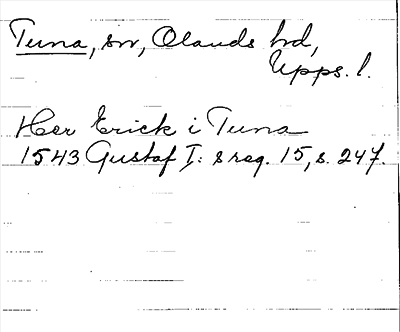 Tuna, sn, Olands hd,
Upps. l.
Her Erick i Tuna
1543 Gustaf I: s reg. 15, s. 247.